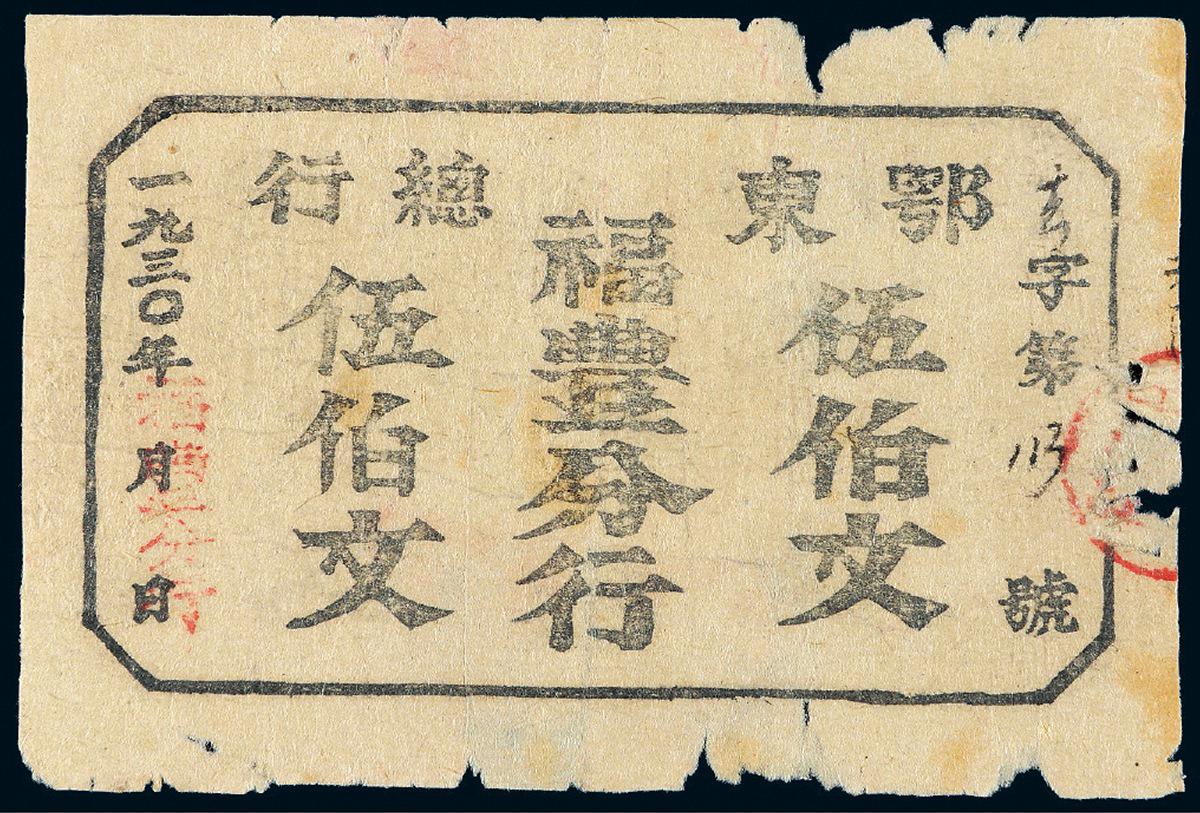 鄂東總行
字第號
伍伯文
福豐分行
伍伯文
一九三〇年月日